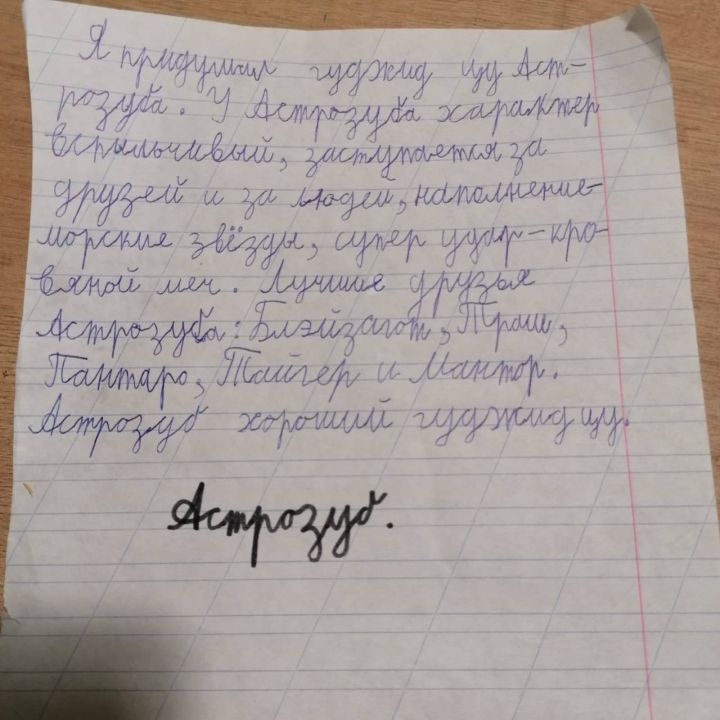 Я придумал гуджид цу Аст-
розуба. У Астрозуба характер
вспыльчивый, заступается за
друзей и за людей, наполнение-
морские звёзды, супер удар-кро-
вяной меч. Лучшие друзья
Астрозуба: Блэйзагот, Траш,
Пантаро, Тайгер и Мантор.
Астрозуб хороший гуджид цу.
Астрозуб.